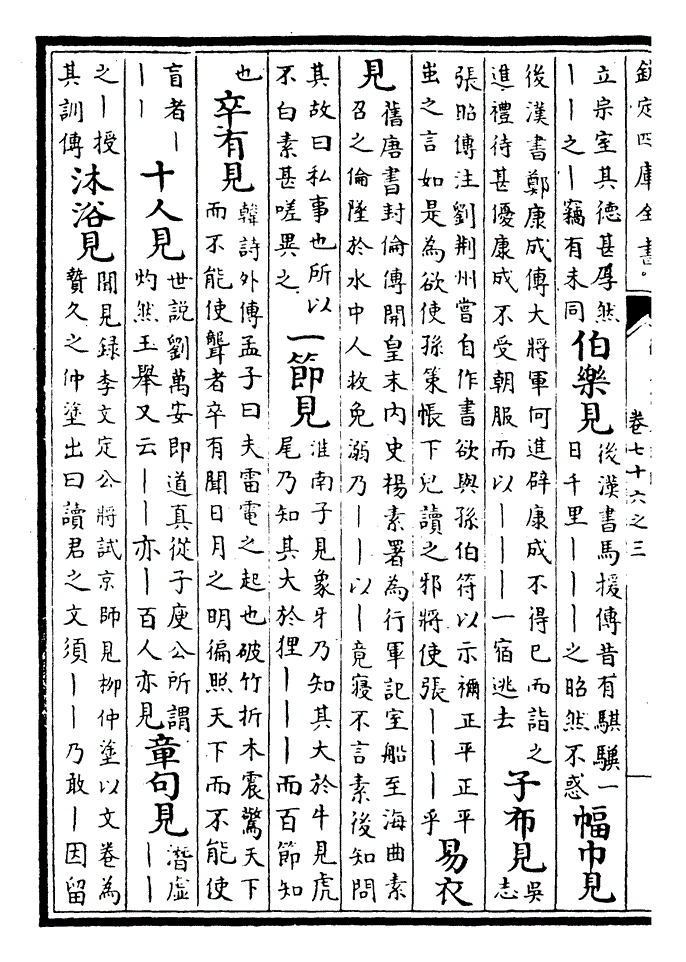 欽定四庫全書
卷七十六之三
立宗室其德甚厚然
｜｜之｜竊有未同
伯樂見
後漢書馬援傳昔有騏驥一
日千里｜｜｜之昭然不惑
幅巾見
後漢書鄭康成傳大將軍何進辟康成不得已而詣之
進禮待甚優康成不受朝服而以｜｜｜一宿逃去
子布見
吳
志
張昭傳注劉荊州嘗自作書欲與孫伯符以示禰正平正平
蚩之言如是為欲使孫策帳下兒讀之邪將使張｜｜｜乎
易衣
見
舊唐書封倫傳開皇末内史楊素署為行軍記室船至海曲素
召之倫墜於水中人救免溺乃｜｜以｜竟寢不言素後知問
其故曰私事也所以
不白素甚嗟異之
一節見
淮南子見象牙乃知其大於牛見虎
尾乃知其大於狸｜｜｜而百節知
也
卒有見
韓詩外傳孟子曰夫雷電之起也破竹折木震驚天下
而不能使聾者卒有聞日月之明徧照天下而不能使
盲者｜
｜｜
十人見
世説劉萬安即道真從子庾公所謂
灼然玉舉又云｜｜｜亦｜百人亦見
章句見
潛虛
｜｜
之｜授
其訓傳
沐浴見
聞見録李文定公將試京師見柳仲塗以文卷為
贄久之仲塗出曰讀君之文須｜｜乃敢｜因留